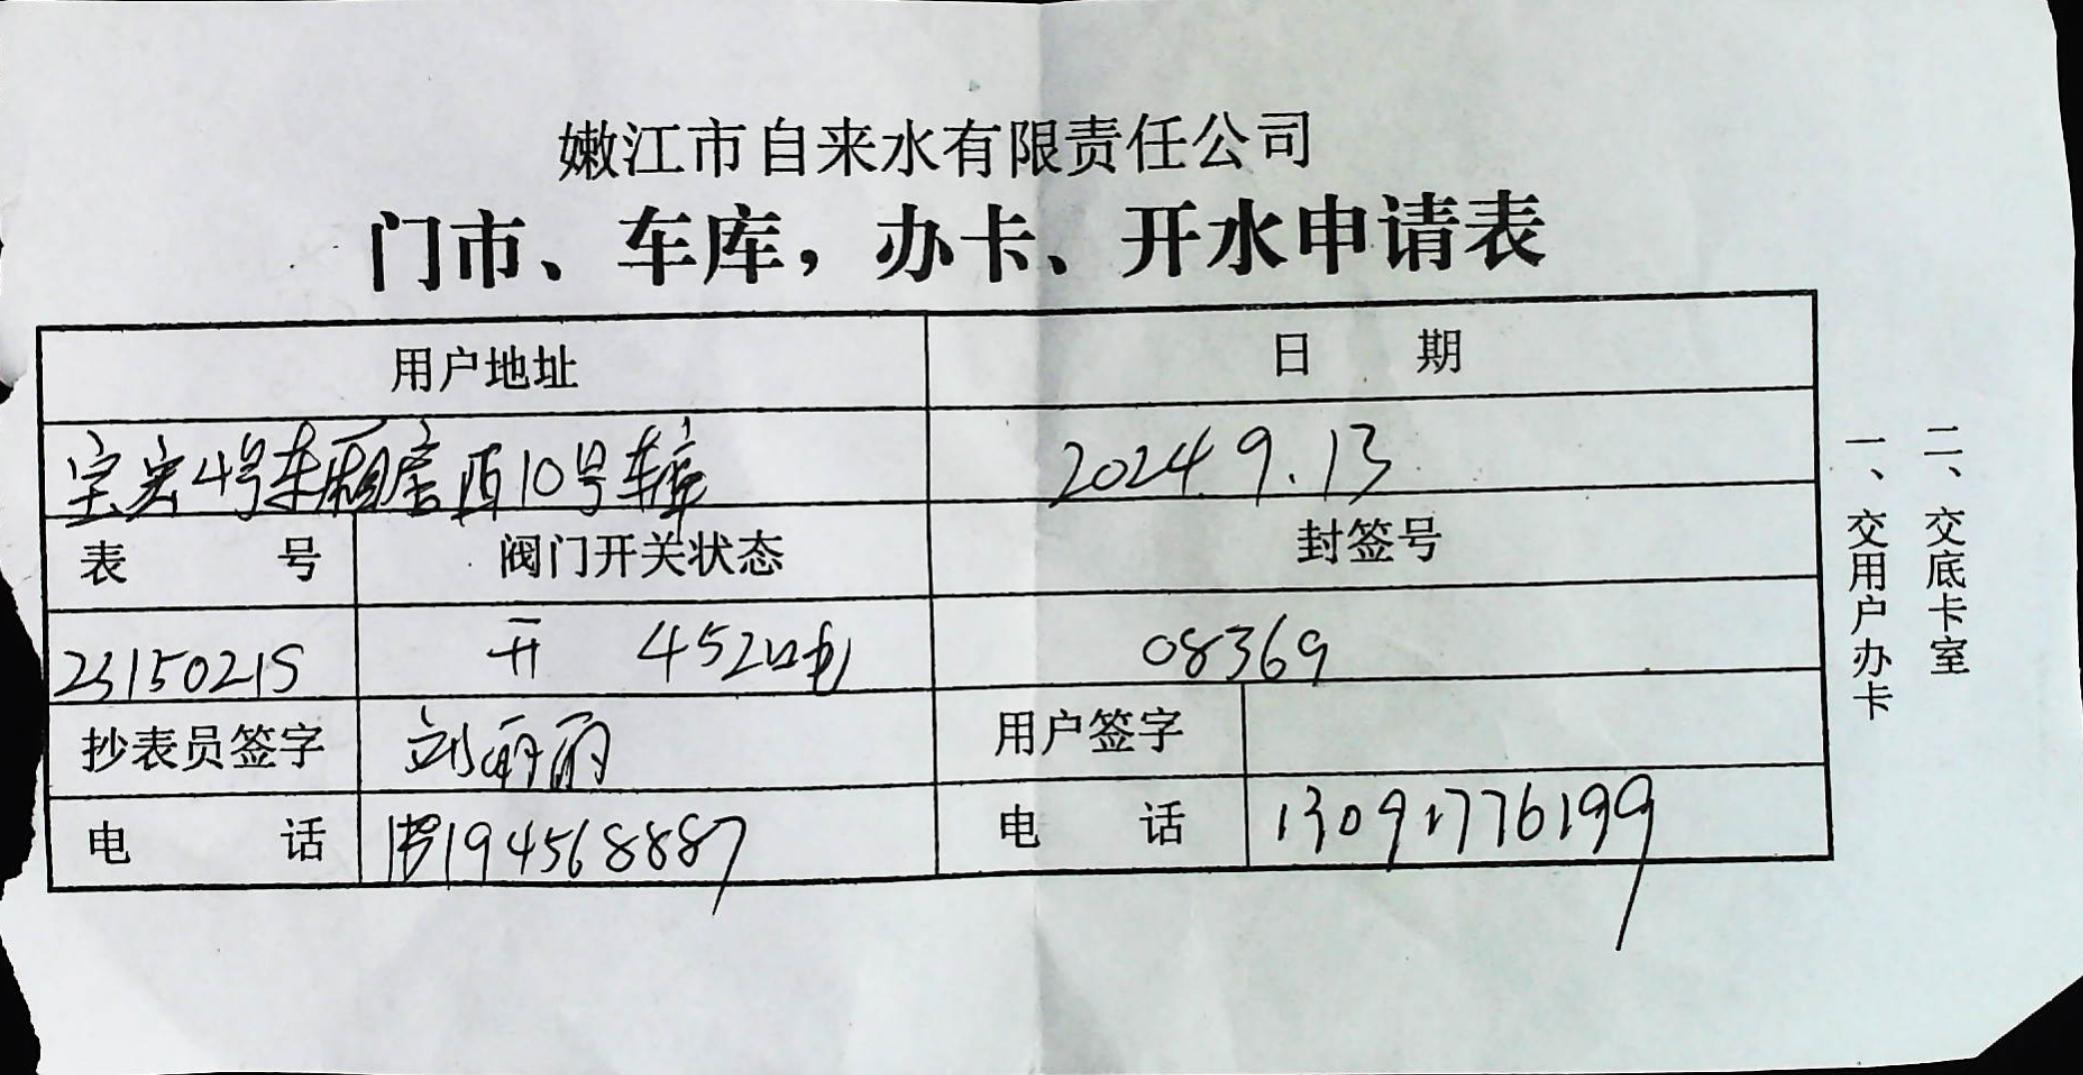 嫩江市自来水有限责任公司
门市、车库，办卡、开水申请表
用户地址 日 期
宝宏4号车厢房西10号车库 2024.9.13
表 号 阀门开关状态 封签号
23150215 开 452吨 08369
抄表员签字 刘丽丽 用户签字
电 话 194568887 电 话 13091776199
一、交用户办卡
二、交底卡室